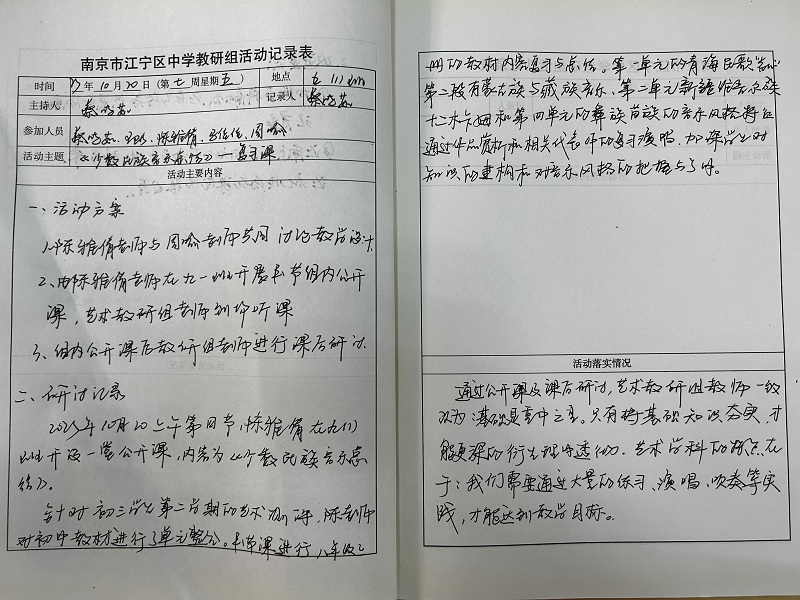 南京市江宁区中学教研组活动记录表
时间 23年10月20日(第七周星期五) 地点 九(1)
主持人 记录人
参加人员
活动主题 《少数民族音乐总结》—复习课
活动主要内容
一、活动方案
1、陈雅倩老师与周 老师共同讨论教学设计
2、由陈雅倩老师在九一班开展本节组内公开
课,艺术教研组老师到场听课
3、组内公开课后教研组老师进行课后研讨.
二、研讨记录
2023年10月20上午第四节,陈雅倩在九(1)
班开设一堂公开课,内容为《少数民族音乐总
结》。
针对初三学生第二学期的艺术测评,陈老师
对初中教材进行了单元整合。本节课进行八年级上
册的教材内容复习与总结。第一单元的青海民歌
第二段有蒙古族与藏族音乐、第三单元新疆维吾尔族
十二木卡姆和第四单元的彝族苗族的音乐风格将会
通过作品赏析和相关代表作的复习演唱,加深学生对
知识的建构和对音乐风格的把握与了解。
活动落实情况
通过公开课及课后研讨,艺术教研组教师一致
认为:基础是重中之重。只有将基础知识夯实,才
能更深的衍生理解透彻。艺术学科的难点在
于:我们需要通过大量的练习、演唱、吹奏等实
践,才能达到教学目标。